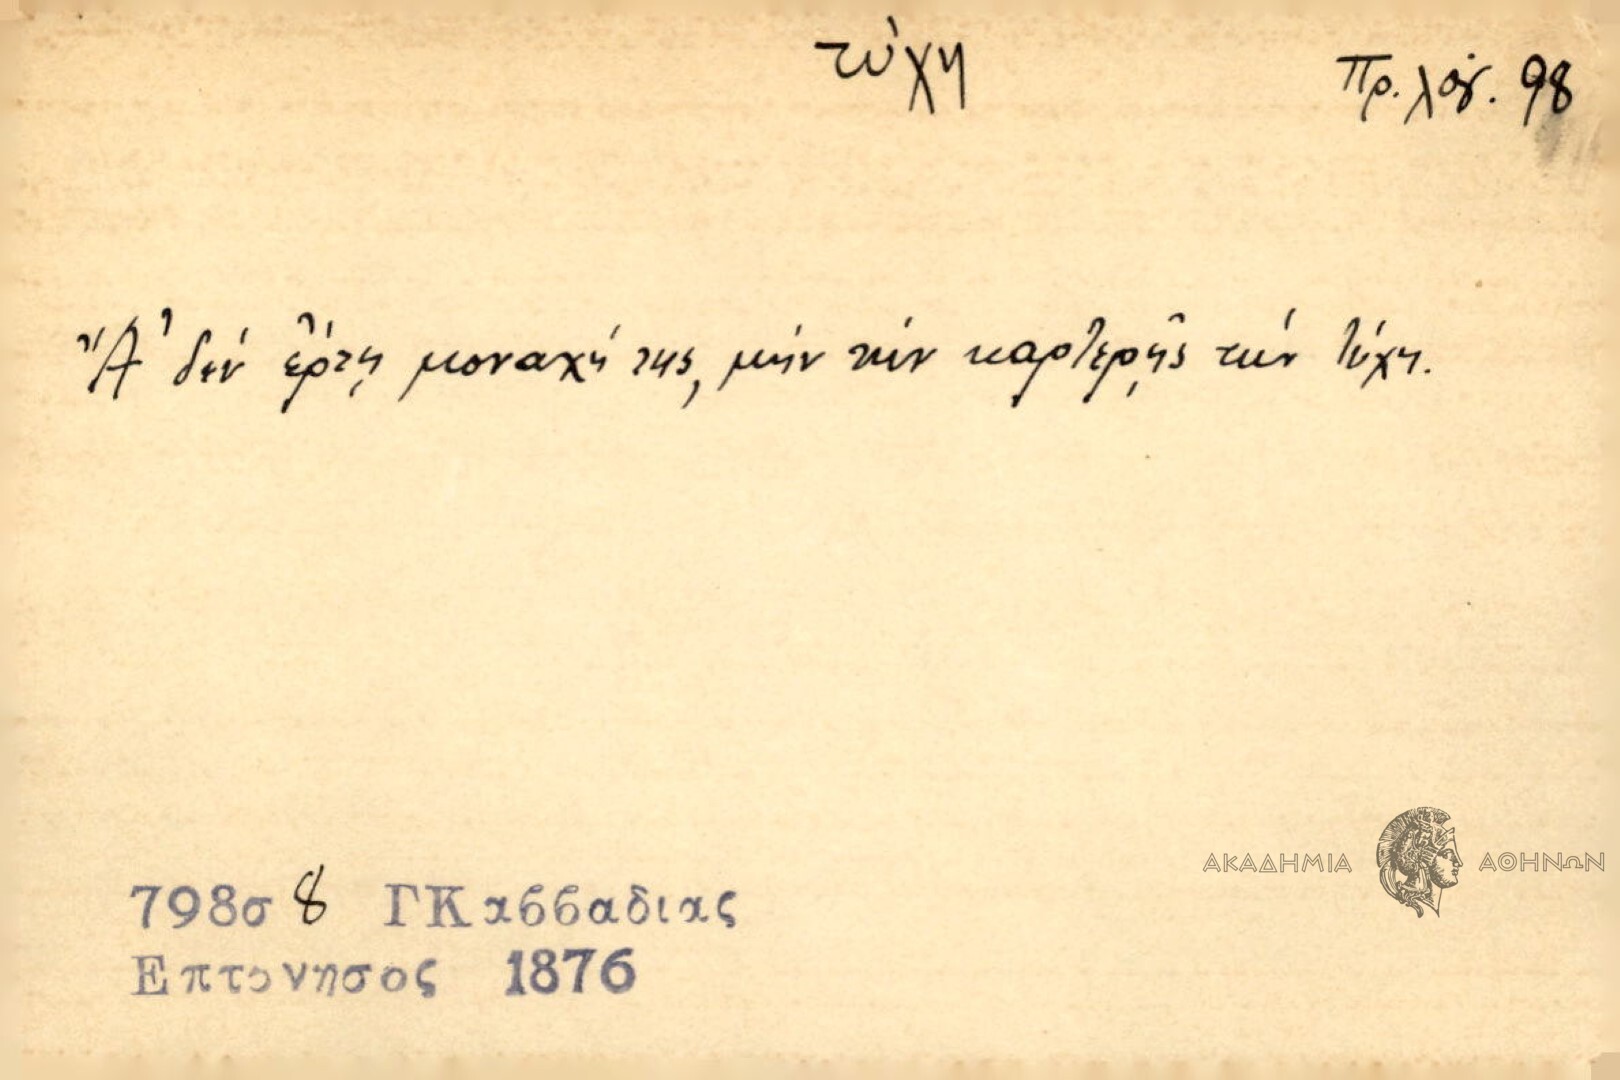 τύχη
Πρ. λόγ. 98
Ἂ' δέν ἔρτῃ μοναχή της, μήν τήν καρτερῇς τήν τύχη.
798σ 8 ΓΚαββαδιας
Επτονησος 1876
ΑΚΑΔΗΜΙΑ ΑΘΗΝΩΝ